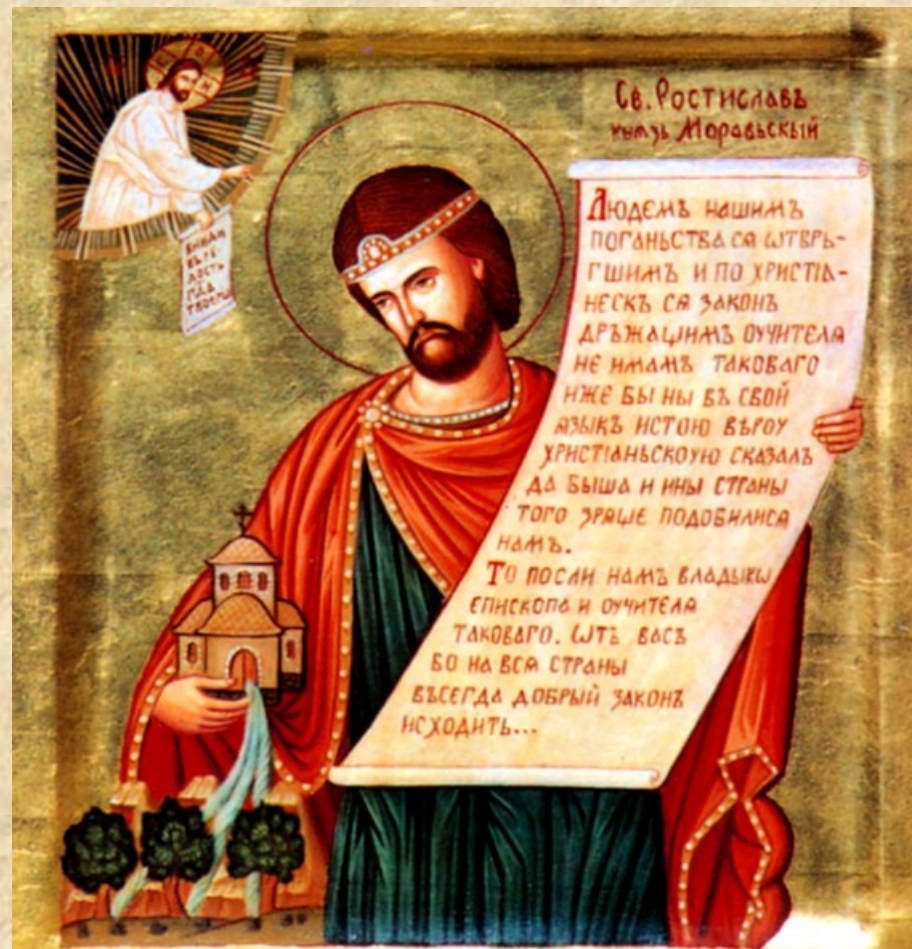 Св. Ростиславъ
князь Моравьскый
Людемъ нашимъ
поганьства сѧ ѿтврь-
гшимъ и по христїа-
нескъ сѧ законъ
дрьжащимъ оучителѧ
не имамъ таковаго
иже бы ны въ свой
ѧзыкъ истою вѣроу
христїаньскоую сказалъ
да быша и ины страны
того зрѧще подобилисѧ
намъ.
То посли намъ владыкѡ
епископа и оучителѧ
таковаго. Ѿтъ васъ
бо на всѧ страны
въсегда добрый законъ
исходить...